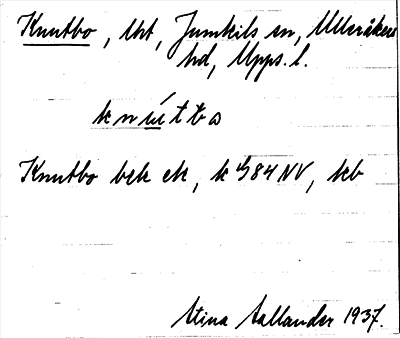 Knutbo, Uht, Jumkils sn, Ulleråkers
hd, Upps. l.
knut́ba
Knutbo bek ek, k 984 NV, kb
Stina Aallander 1937.